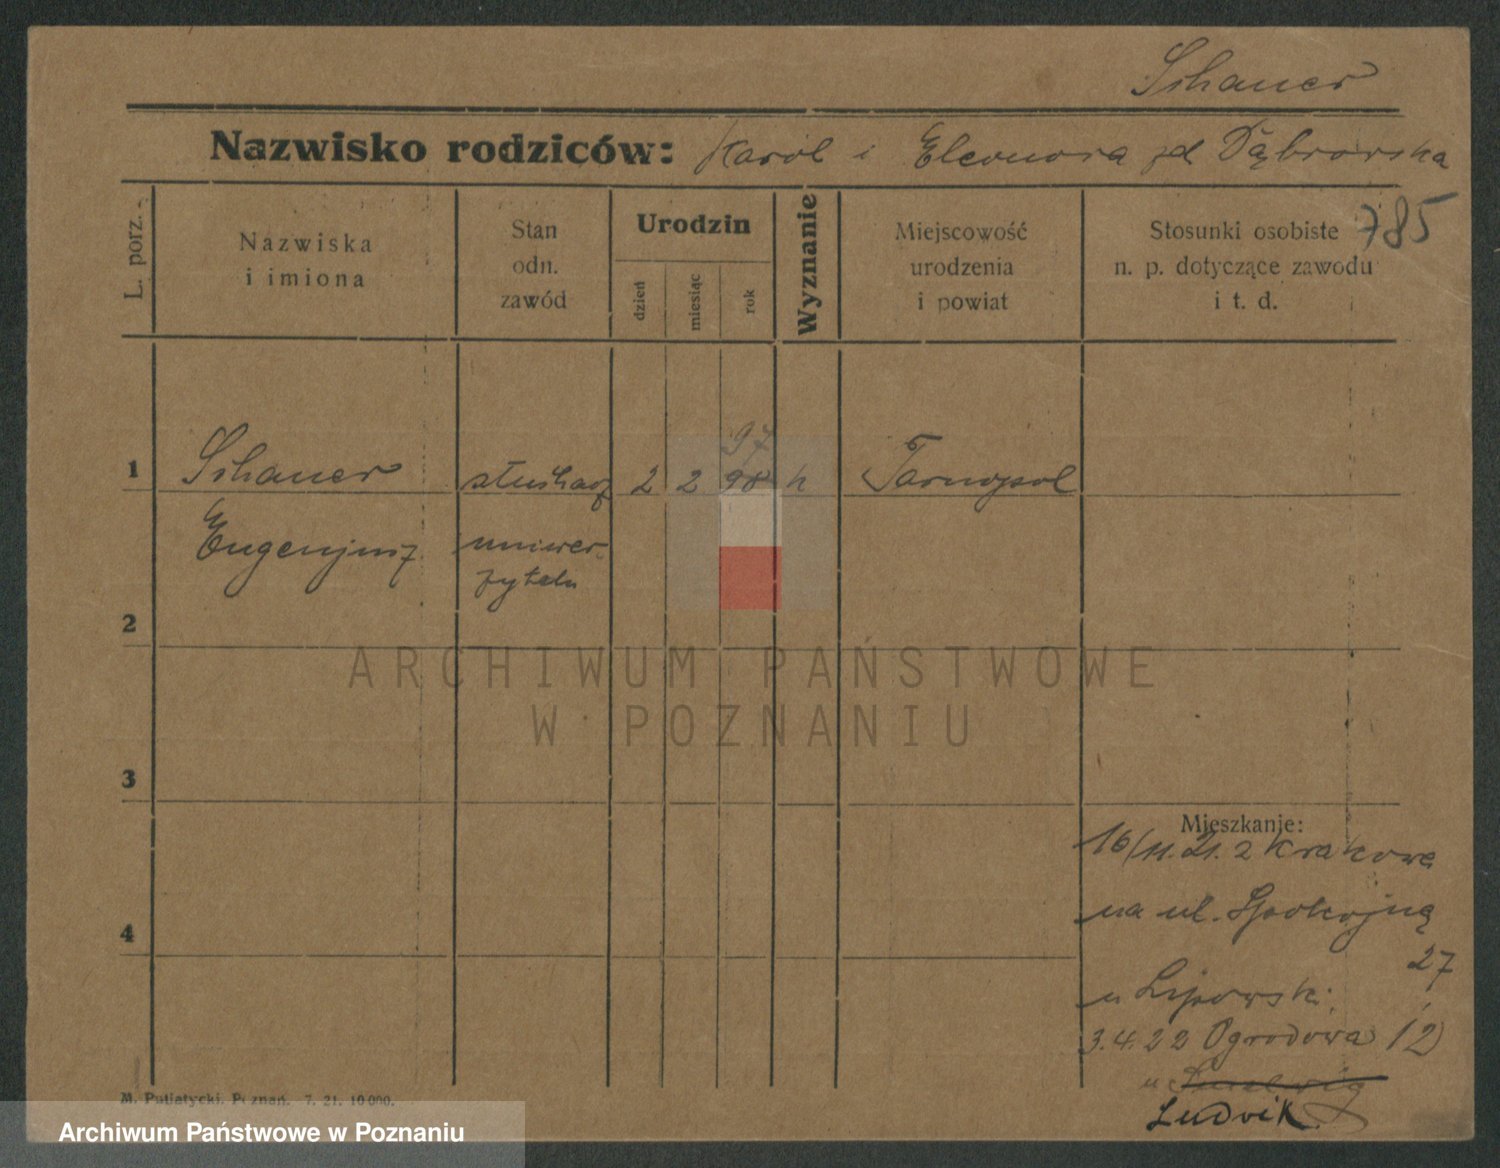 Schauer
Nazwisko rodziców: Karol i Eleonora zd Dąbrowska
785
L. porz.
Nazwiska
i imiona
Stan
odn.
zawód
Urodzin
dzień
miesiąc
rok
Wyznanie
Miejscowość
urodzenia
i powiat
Stosunki osobiste
n. p. dotyczące zawodu
i t. d.
97
1 Schauer słuchacz 2 2 98 k Tarnopol
Eugenjusz uniwer-
zytetu
2
ARCHIWUM PAŃSTWOWE
W POZNANIU
3
Mieszkanie:
16/11.21. z Krakowa
na ul. Spokojną
4
27
u Lipowski
3.4.22 Ogrodowa 12
u
Ludvik
M. Putiatycki. Poznań. 7. 21. 10 000.
Archiwum Państwowe w Poznaniu